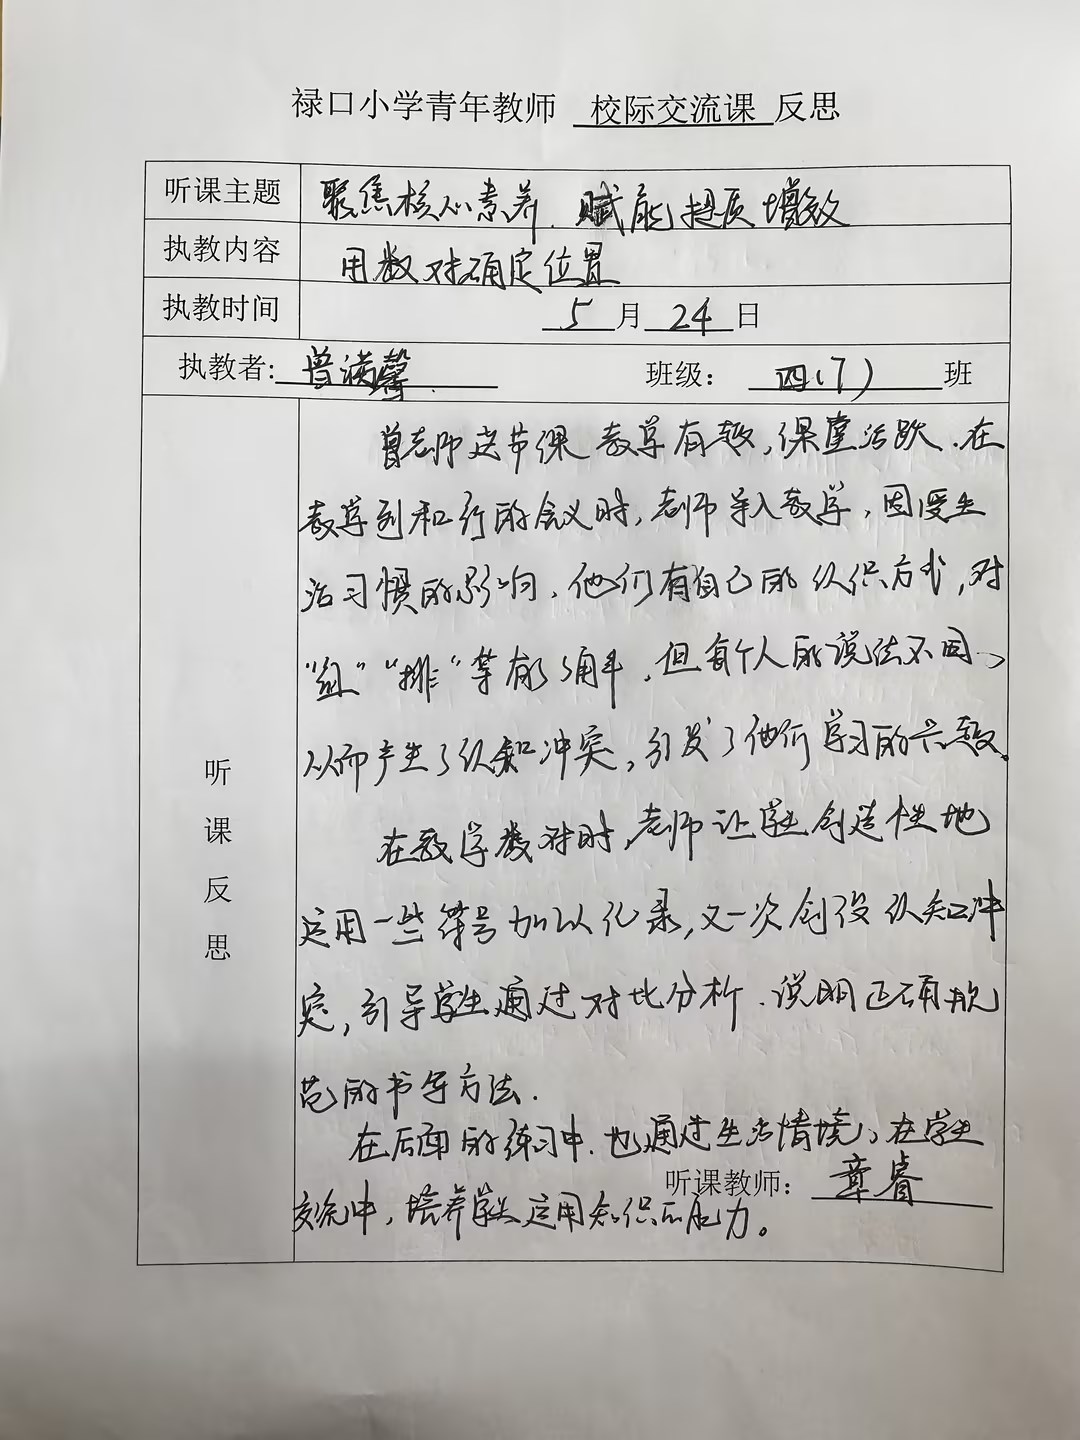 禄口小学青年教师 校际交流课 反思
听课主题 聚焦核心素养 赋能提质增效
执教内容 用数对确定位置
执教时间 5月24日
执教者: 曾满馨 班级: 四(7)班
听课反思
曾老师这节课教学有趣,课堂活跃.在
教学列和行的含义时,老师导入教学,因受生
活习惯的影响,他们有自己的认识方式,对
"组""排"等有了了解,但每个人的说法不同,
从而产生了认知冲突,引发了他们学习的兴趣。
在教学数对时,老师让学生创造性地
运用一些符号加以记录,又一次创设认知冲
突,引导学生通过对比分析.说明正确规
范的书写方法.
在后面的练习中.也通过生活情境,在学生
交流中,培养学生运用知识的能力。
听课教师: 章睿